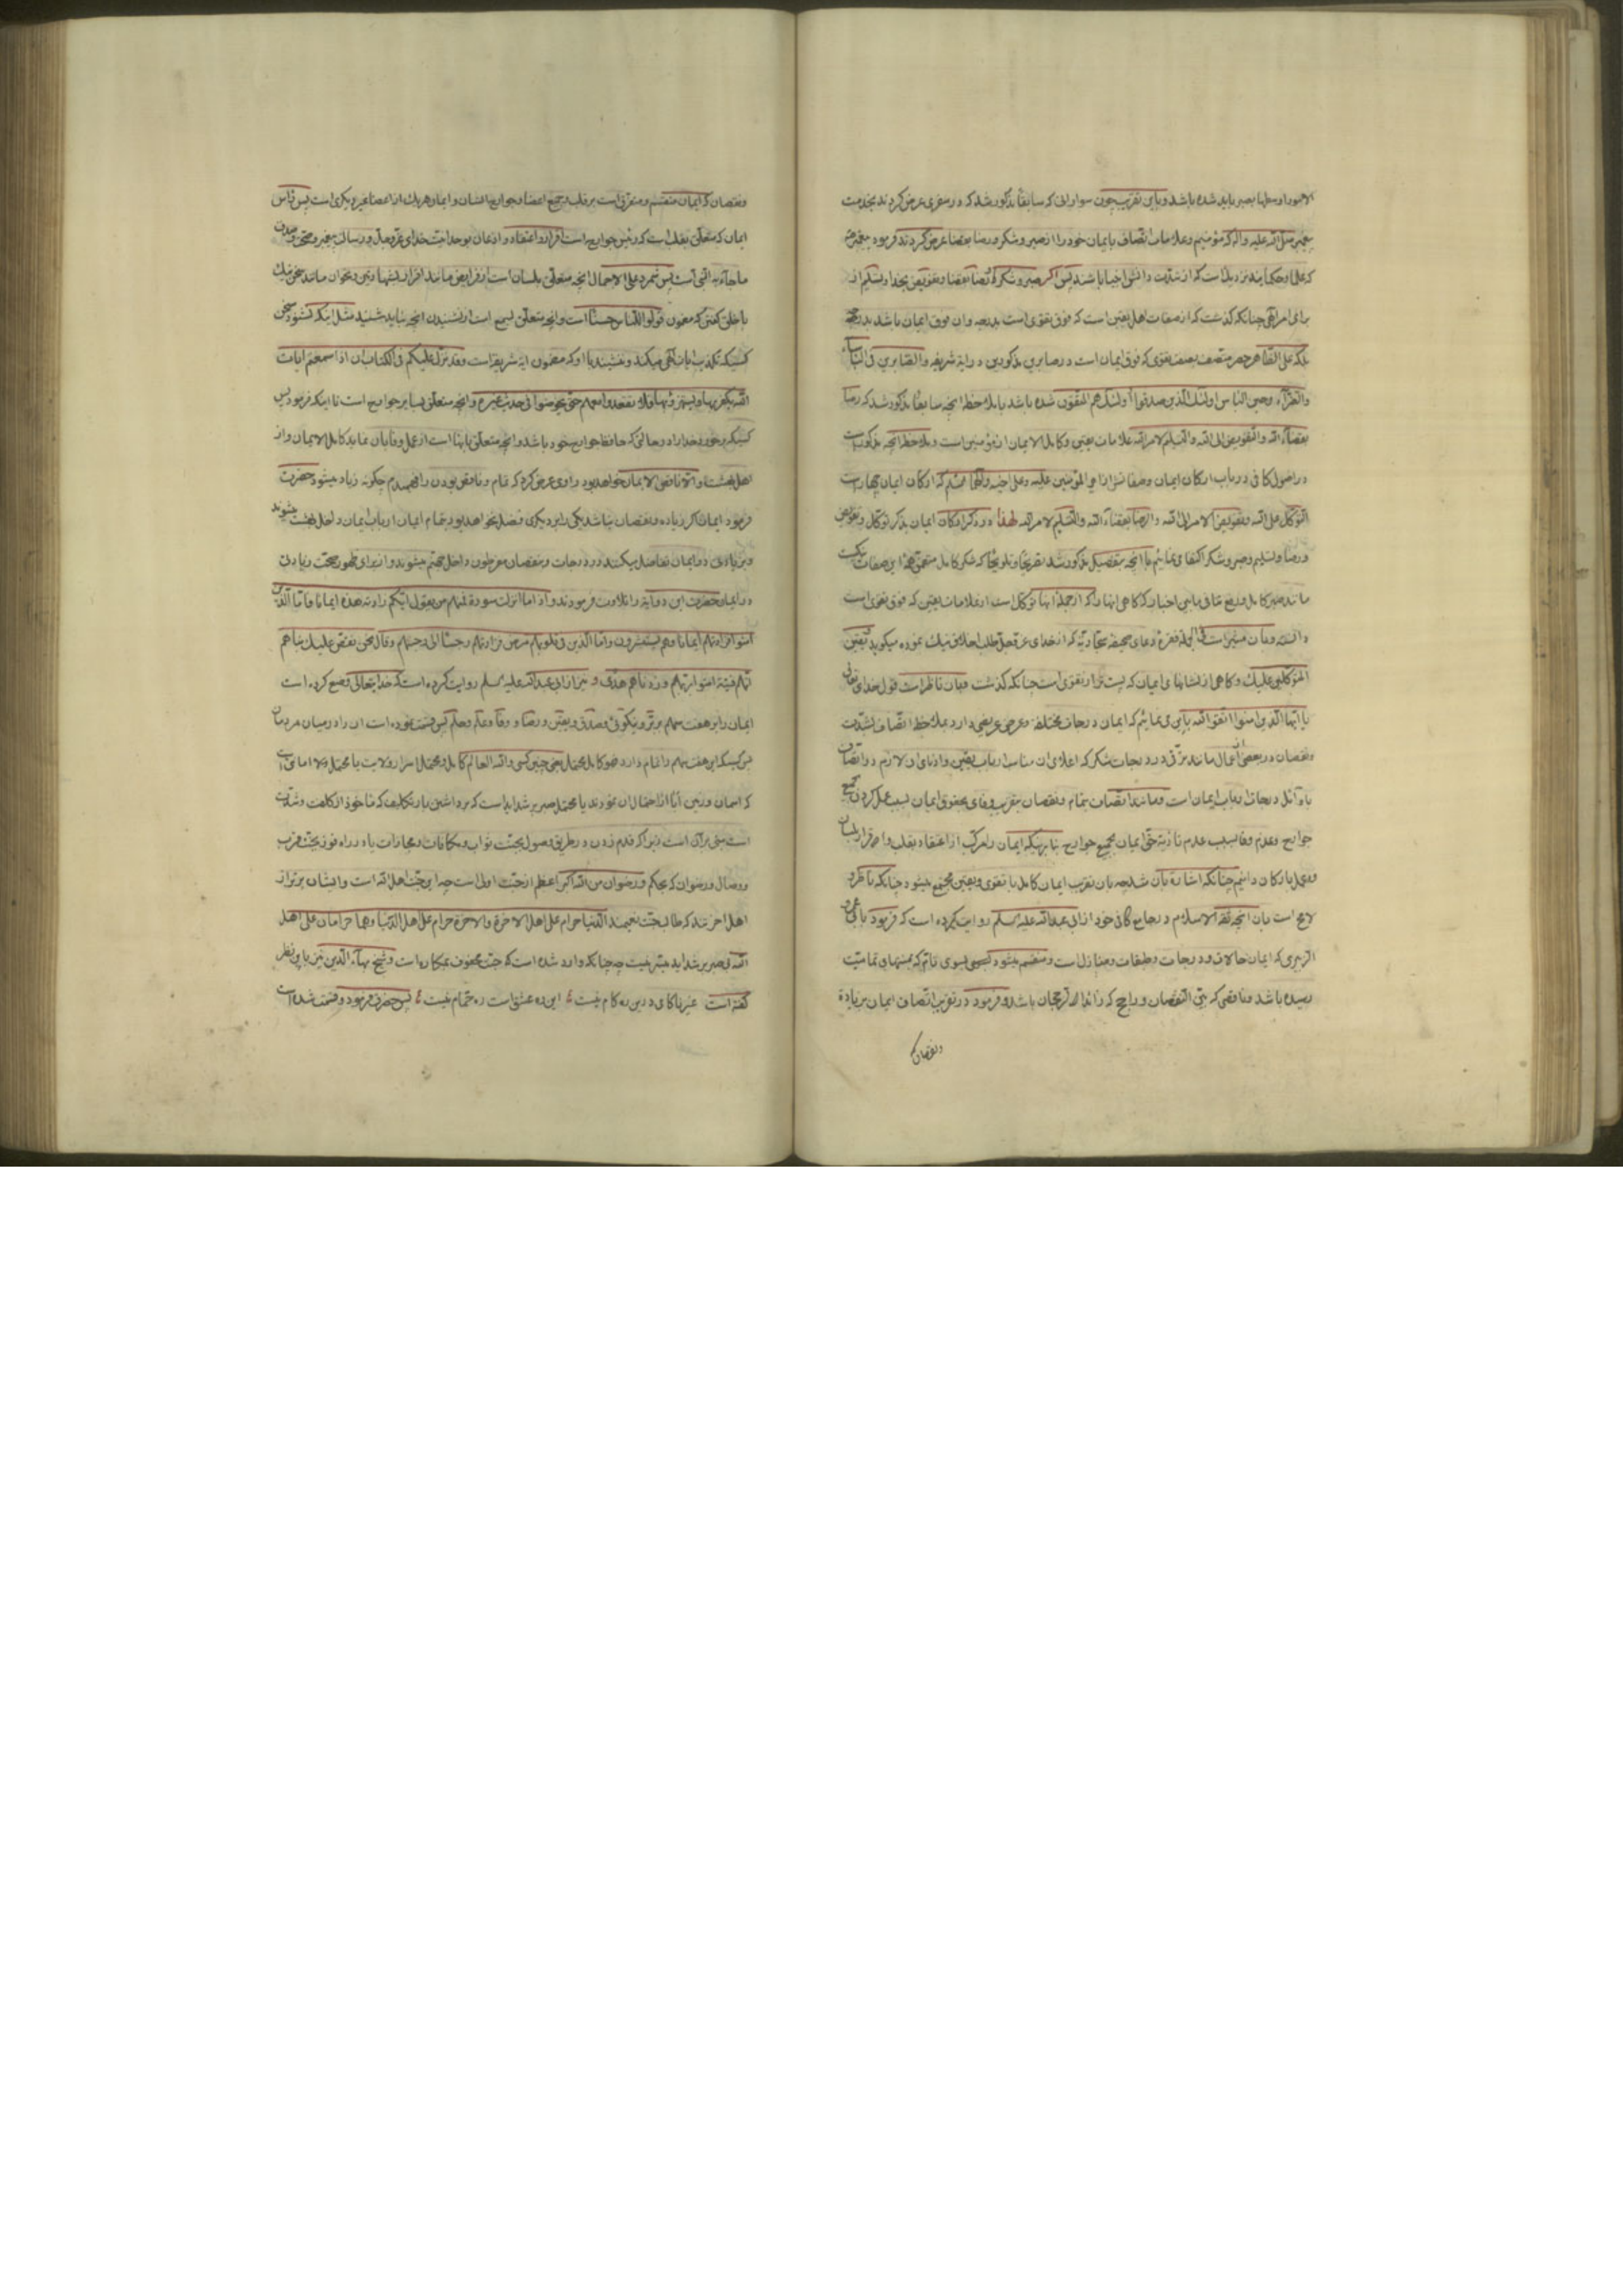 الامور او معلها بصیر باید شده باشد و باین تقریب چون سوارانی که سابقا مذکور شد که در سفری عرض کردند بخدمت
پیغمبر صلی الله علیه و آله که مؤمنیم و علامات اتصاف بایمان خود را از صبر و شکر و رضا بقضا عرض کردند فرمود پیغمبر ص
که علما و حکما اند نزدیک است که از شدت دانش انبیا باشند پس اگر صبر و شکر و رضا بقضا و تفویض بخدا و تسلیم از
برای امر الهی چنانکه گذشت که از صفات اهل یقین است که فوق تقوی است بدرجه و ان فوق ایمان باشد بدرجه
بلکه علی الظاهر حصر متصف بصفت تقوی که فوق ایمان است در صابرین مذکورین در آیة شریفه و الصابرین فی البأساء
والضراء و حین البأس اولئک الذین صدقوا و اولئک هم المتقون شده باشد با ملاحظه انچه سابقا مذکور شد که رضا
بقضاء الله و التفویض الی الله و التسلیم لامر الله علامات یقین و کامل الایمان از مؤمنین است و ملاحظه انچه مذکور است
در اصول کافی در باب ارکان ایمان وصفاتش از امیر المؤمنین علیه و علی اخیه و آلهما که ارکان ایمان چهار است
التوکل علی الله و تفویض الامر الی الله و الرضا بقضاء الله و التسلیم لامر الله لهذا در ذکر ارکان ایمان بذکر توکل و تفویض
و رضا و تسلیم و صبر و شکر اکتفا می نمائیم با انچه بتفصیل مذکور شد تصریحا و تلویحا که شکر کامل متضمن همه این صفات
مانند صبر کامل و رفع تنافی مابین اخبار که گاهی انها را که از جمله انها توکل است از علامات یقین که فوق تقوی است
دانسته و بان مشیر است فی الجمله فقره دعای صحیفه سجادیه که از خدای عز و جل طلب اخلاق نیک نموده میگوید و یقین
المتوکلین علیک و گاهی از نشانهای ایمان که پست تر از تقوی است چنانکه گذشت و بان ناظر است قول خدای تعالی
یا ایها الذین امنوا اتقوا الله باین می نمایم که ایمان درجات مختلفه و عرض عریضی دارد بملاحظه اتصاف بشدت
و نقصان در بعضی اعمال مانند ترقی در درجات شکر که اعلای ان مناسب ارباب یقین و ادنای ان لازم در اتصاف
باوائل درجات ارباب ایمان است و مانند اتصاف بتمام و نقصان بتقریب وفای بحقوق ایمان بسبب عمل کردن جمیع
جوارح و عدم وفا بسبب عدم تأدیه حق ایمان بجمیع جوارح بنا بر اینکه ایمان را مرکب از اعتقاد بقلب و اقرار بلسان
و عمل بارکان دانیم چنانکه اشاره بان شد چه بان تقریب ایمان کامل با تقوی و یقین مجتمع میشود چنانکه ناظر و
لایح است بان انچه ثقة الاسلام در جامع کافی خود از ابی عبدالله علیه السلم روایت کرده است که فرمود با ابی عمرو
الزبیری که ایمان حالات و درجات و طبقات و منازل است و منقسم میشود بسوی تام که بمنتهای تمامیت
رسیده باشد و ناقصی که بیّن النقصان و راجح که زائد الرجحان باشد و فرمود در تقریب اتصاف ایمان بزیادة
و نقصان که
و نقصان که ایمان منقسم و متفرق است بر قلب و جمیع اعضا و جوارح انسان و ایمان هر یک از اعضا غیر دیگری است پس
ایمان که متعلق بقلب است که رئیس جوارح است اقرار و اعتقاد و اذعان بوحدانیت خدای عز و جل و رسالت پیغمبر و
ما جاء به النبی است پس شمرد علی الاجمال انچه متعلق بلسان است از فرایض مانند اقرار بشهادتین و بخوان مانند سخن نیک
با خلق گفتن که مضمون قولوا للناس حسنا است و انچه متعلق بسمع است از نشنیدن انچه نباید شنید مثل اینکه نشنود سخن
کسیکه تکذیب ایات الهی میکند و ننشیند با او که مضمون ایه شریفه است و قد نزل علیکم فی الکتاب ان اذا سمعتم ایات
الله یکفر بها و یستهزء بها فلا تقعدوا معهم حتی یخوضوا فی حدیث غیره و انچه متعلق بسایر جوارح است تا اینکه فرمود پس
کسیکه بر خورد بخدا در حالتی که حافظ جوارح خود باشد و انچه متعلق بانها است از عمل وفا بان نماید کامل الایمان و از
اهل بهشت است و الا ناقص الایمان خواهد بود راوی عرض کرد که تمام و ناقص بودن را فهمیدم چگونه زیاد میشود حضرت
فرمود ایمان اگر زیاده و نقصان نباشد یکی را بر دیگری فضل نخواهد بود بتمام ایمان ارباب ایمان داخل بهشت میشوند
و بزیادتی در ایمان تفاضل میکنند در درجات و بنقصان مفرطون داخل جهنم میشوند و از برای ظهور صحت زیادتی
در ایمان حضرت این دو آیه را تلاوت فرمودند و اذا ما انزلت سورة فمنهم من یقول ایکم زادته هذه ایمانا فاما الذین
آمنوا فزادتهم ایمانا و هم یستبشرون و اما الذین فی قلوبهم مرض فزادتهم رجسا الی رجسهم و قال نحن نقص علیک نبأهم
انهم فتیة امنوا بربهم و زدناهم هدی و نیز از ابی عبدالله علیه السلم روایت کرده است که خدا یتعالی وضع کرده است
ایمان را بر هفت سهم بر بر و نیکوئی و صدق و یقین و رضا و وفا و علم و حلم پس قسمت نموده است ان را در میان مردمان
پس کسیکه این هفت سهم را تمام دارد فهو کامل محتمل یعنی چنین کسی والله العالم کامل و محتمل اسرار ولایت یا محتمل امانتی است
که اسمان و زمین ابا از احتمال ان نمودند یا محتمل صبر بر شداید است که برداشتن بار تکلیف که ماخوذ از کلفت و شدت
است مبنی بر آن است زیرا که قدم زدن در طریق وصول بجنت ثواب و مکافات و مجازات یا در راه فوز بجنت قرب
و وصال و رضوان که بحکم و رضوان من الله اکبر اعظم از جنت اولی است چه این جنت اهل الله است و ایشان برتر از
اهل اخرتند که طالب جنت نعیمند الدنیا حرام علی اهل الاخرة و الاخرة حرام علی اهل الدنیا و هما حرامان علی اهل
الله بی صبر بر شداید میسر نیست چه چنانکه وارد شده است که جنت محفوف بمکاره است و شیخ بهاء الدین نیز باین نظر
گفته است غیر ناکامی درین ره کام نیست این ره عشق است ره حمام نیست پس حضرت فرمود و قسمت شده است